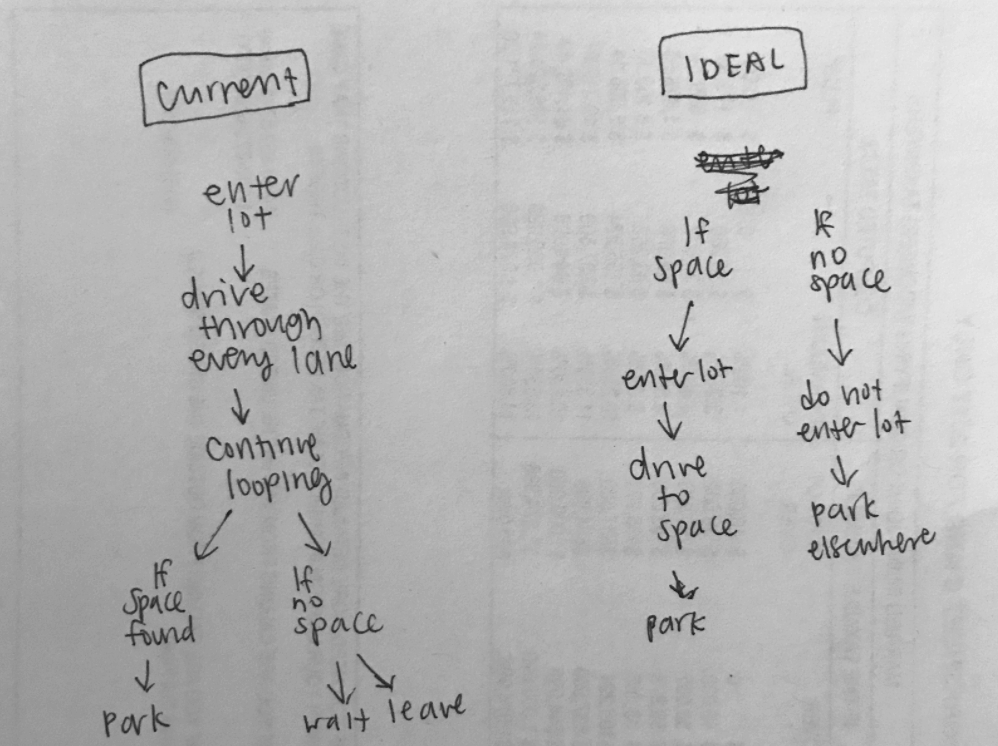 Current
enter
lot
drive
through
every lane
continue
looping
If
space
found
park
If
no
space
wait leave
IDEAL
If
space
enter lot
drive
to
space
park
If
no
space
do not
enter lot
park
elsewhere